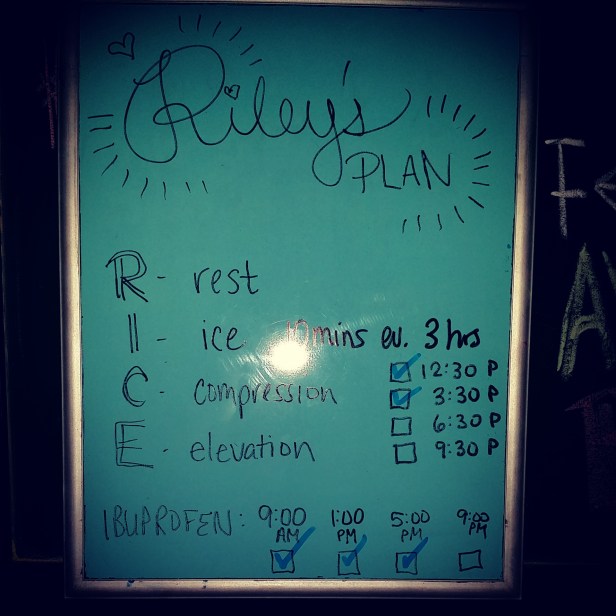 Riley's
PLAN
R - rest
I - ice 10 mins ev. 3 hrs
12:30 P
C - compression
3:30 P
6:30 P
E - elevation
9:30 P
IBUPROFEN: 9:00 AM 1:00 PM 5:00 PM 9:00 PM